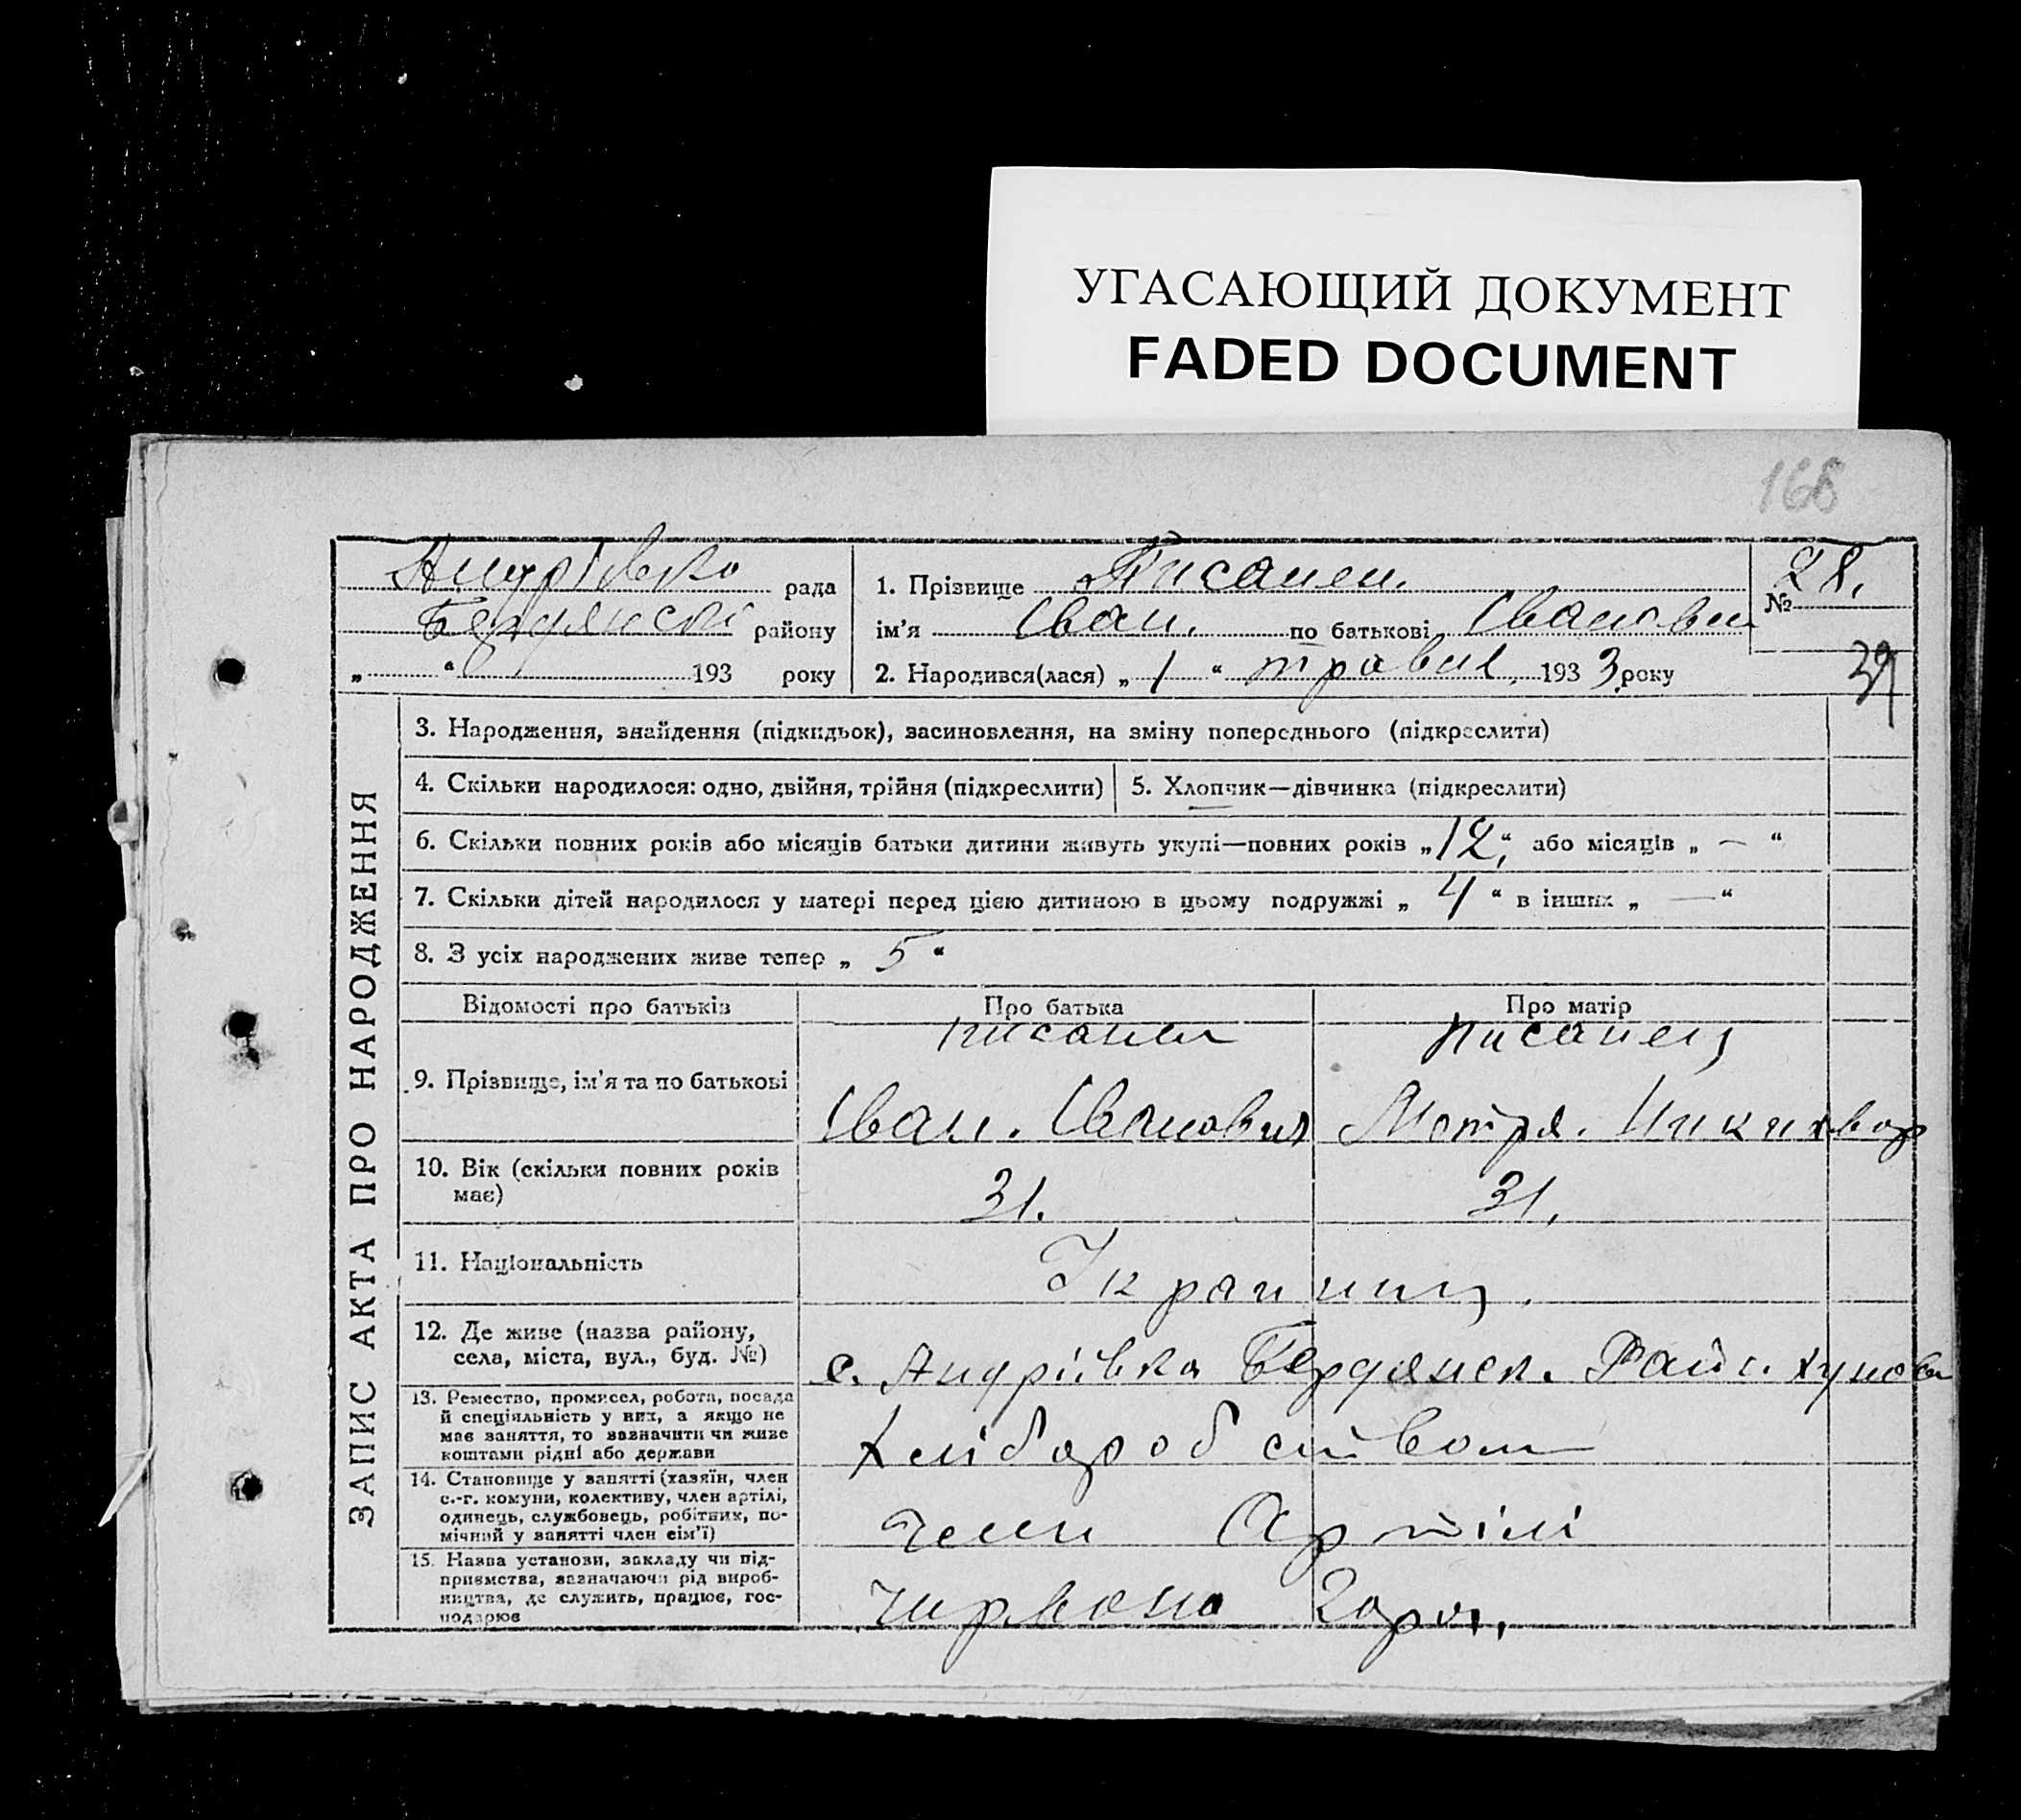 УГАСАЮЩИЙ ДОКУМЕНТ
FADED DOCUMENT
168
Андрівска рада
Бердянскі району
„ “ 193 року
1. Прізвище Писанец.
ім’я Іван. по батькові Іванович
2. Народився(лася) „ 1 “ травня 193 3 року
№ 28.
39
ЗАПИС АКТА ПРО НАРОДЖЕННЯ
3. Народження, знайдення (підкидьок), засиновлення, на зміну попереднього (підкреслити)
4. Скільки народилося: одно, двійня, трійня (підкреслити)
5. Хлопчик—дівчинка (підкреслити)
6. Скільки повних років або місяців батьки дитини живуть укупі—повних років „ 12 “, або місяців „ — “
7. Скільки дітей народилося у матері перед цією дитиною в цьому подружжі „ 4 “ в інших „ — “
8. З усіх народжених живе тепер „ 5 “
Відомості про батьків Про батька Про матір
9. Прізвище, ім’я та по батькові
Писанец Писанец
Іван. Іванович Мотря.
10. Вік (скільки повних років має)
31. 31.
11. Національність
Українц.
12. Де живе (назва району, села, міста, вул., буд. №)
с. Андріївка Бердянск. Райн.
13. Ремество, промисел, робота, посада
й спеціяльність у них, а якщо не
має заняття, то зазначити чи живе
коштами рідні або держави
Хліборобством
14. Становище у занятті (хазяїн, член
с.-г. комуни, колективу, член артілі,
одинець, службовець, робітник, по-
мічний у занятті член сім’ї)
Член Артілі
15. Назва установи, закладу чи під-
приємства, зазначаючи рід вироб-
ництва, де служить, працює, гос-
подарює
Чирвона